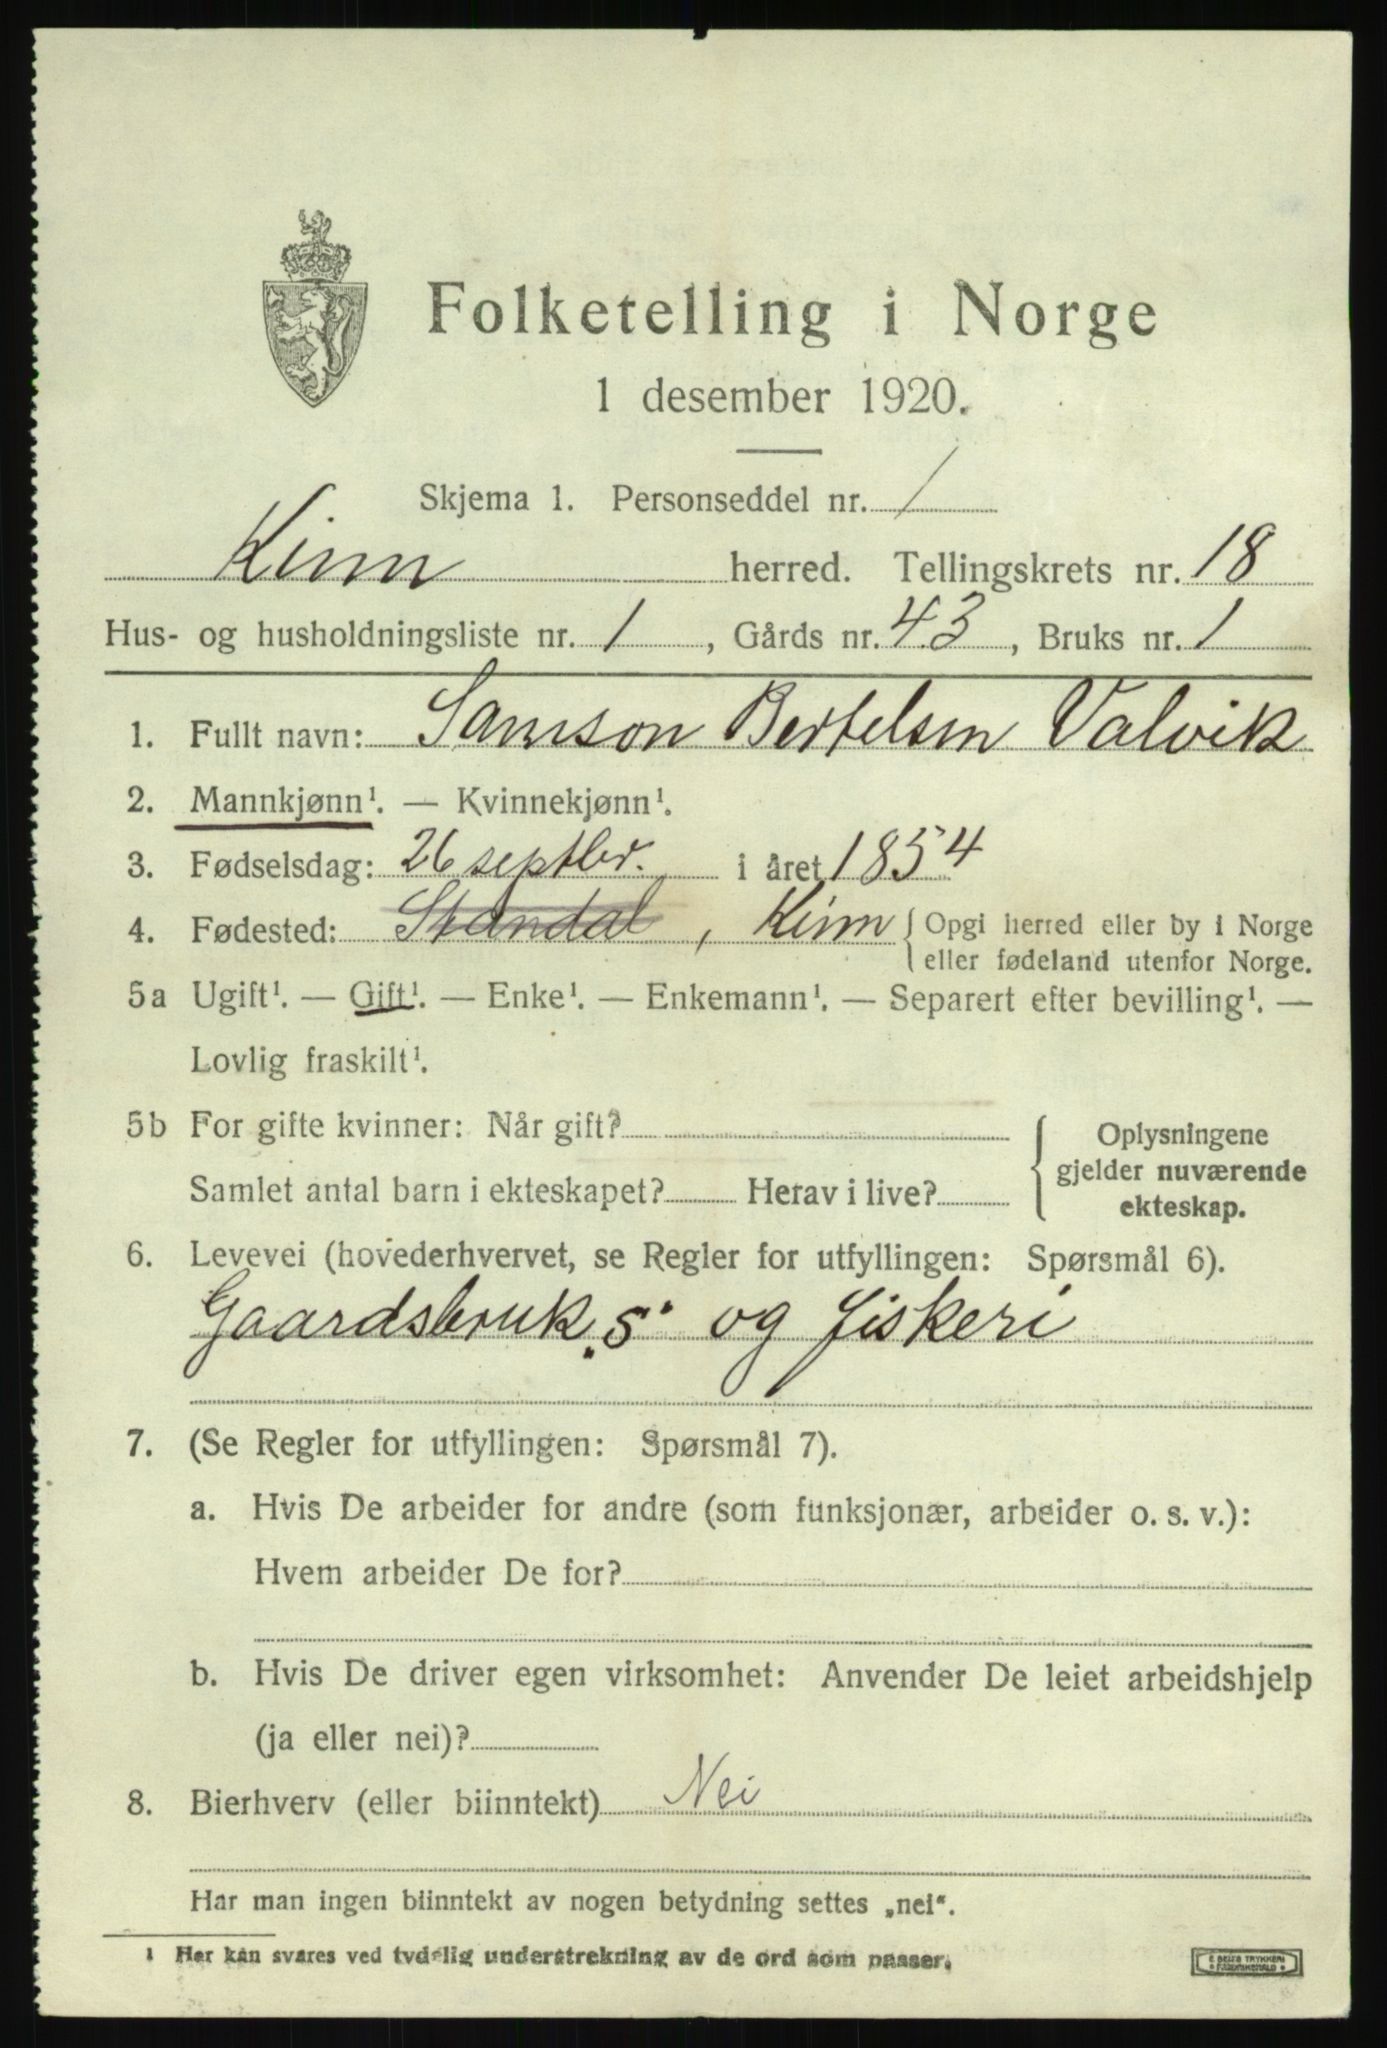 Folketelling i Norge
1 desember 1920.
Skjema 1. Personseddel nr. 1
Kinn herred. Tellingskrets nr. 18
Hus- og husholdningsliste nr. 1, Gårds nr. 43, Bruks nr. 1
1. Fullt navn: Samson Bertelsen Valvik
2. Mannkjønn¹. — Kvinnekjønn¹.
3. Fødselsdag: 26 septbr. i året 1854
4. Fødested: Standal, Kinn { Opgi herred eller by i Norge
eller fødeland utenfor Norge.
5a Ugift¹. — Gift¹. — Enke¹. — Enkemann¹. — Separert efter bevilling¹. —
Lovlig fraskilt¹.
5b For gifte kvinner: Når gift?
Samlet antal barn i ekteskapet? Herav i live?
Oplysningene
gjelder nuværende
ekteskap.
6. Levevei (hovederhvervet, se Regler for utfyllingen: Spørsmål 6).
Gaardsbruk „s" og fiskeri
7. (Se Regler for utfyllingen: Spørsmål 7).
a. Hvis De arbeider for andre (som funksjonær, arbeider o. s. v.):
Hvem arbeider De for?
b. Hvis De driver egen virksomhet: Anvender De leiet arbeidshjelp
(ja eller nei)?
8. Bierhverv (eller biinntekt) Nei
Har man ingen biinntekt av nogen betydning settes „nei“.
¹ Her kan svares ved tydelig understrekning av de ord som passer.